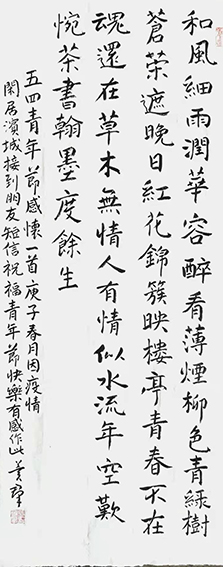 和風細雨潤華容醉看薄煙柳色青綠樹
蒼荣遮晚日紅花錦簇映楼亭青春不在
魂還在草木無情人有情似水流年空歎
惋茶書翰墨度餘生
五四青年節感懷一首庚子春月因疫情
閑居濱城接到朋友短信祝福青年節快樂有感作此